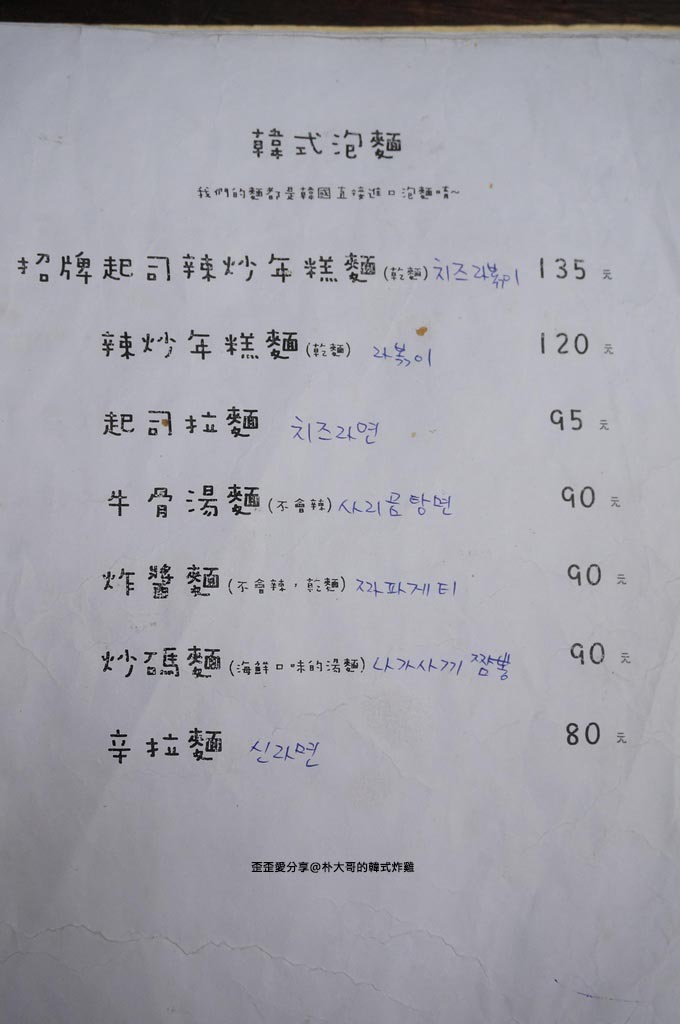 韓式泡麵
我們的麵都是韓國直接進口泡麵唷~
招牌起司辣炒年糕麵(乾麵) 치즈라볶이 135元
辣炒年糕麵(乾麵) 라볶이 120元
起司拉麵 치즈라면 95元
牛骨湯麵(不會辣) 사리곰탕면 90元
炸醬麵(不會辣,乾麵) 짜파게티 90元
炒碼麵(海鮮口味的湯麵) 나가사끼 짬뽕 90元
辛拉麵 신라면 80元
歪歪愛分享@朴大哥的韓式炸雞